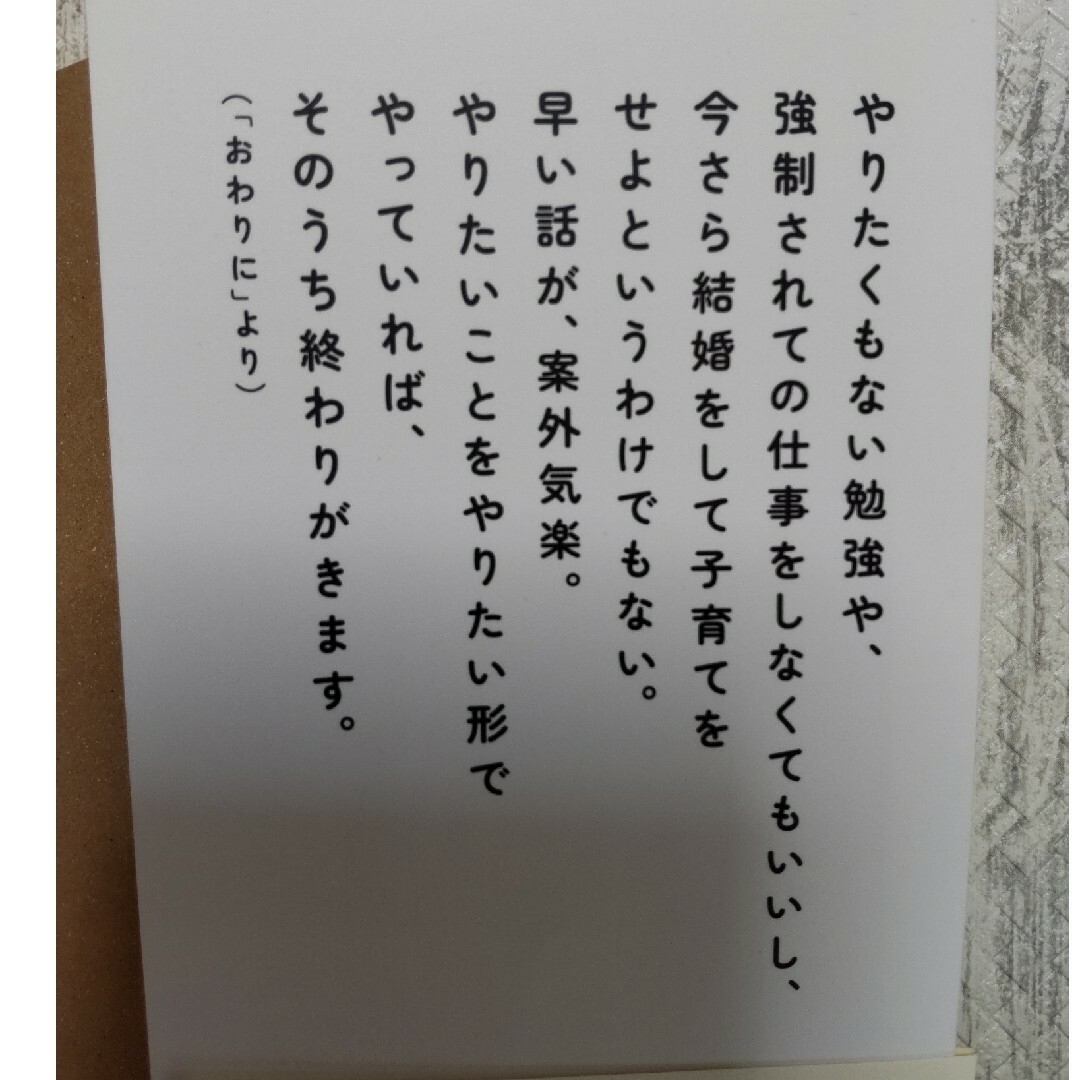 やりたくもない勉強や、
強制されての仕事をしなくてもいいし、
今さら結婚をして子育てを
せよというわけでもない。
早い話が、案外気楽。
やりたいことをやりたい形で
やっていれば、
そのうち終わりがきます。
（「おわりに」より）